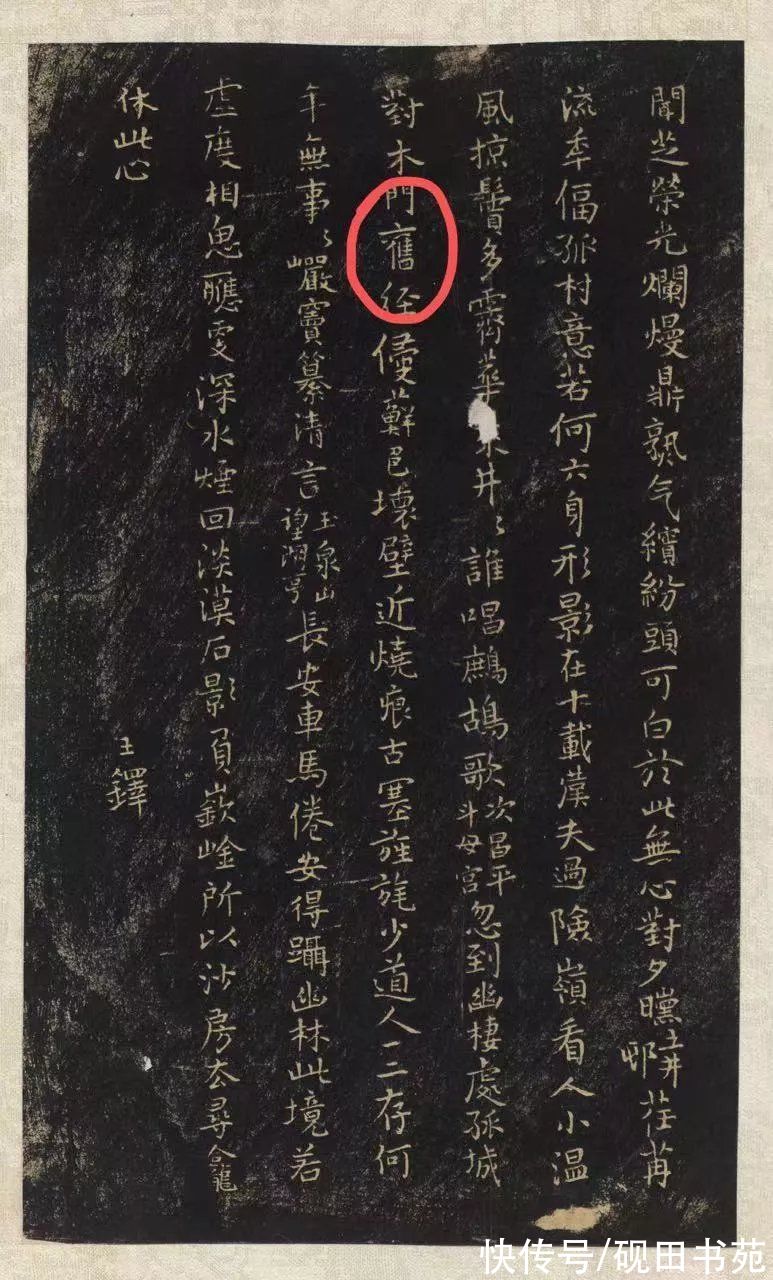 聞芝榮光爛熳鼎熟气繽紛頭可白於此無心對夕曛土井邨荏苒
流季偪孤村意若何六身形影在十載僕夫過險嶺看人小温
風掠鬢多霽華井〻誰唱鷓鴣歌次昌平斗母宮忽到幽棲處孤城
對木門舊経侵蘚邑壞壁近燒痕古塞旌旄少道人一二存何
年無事〻巖竇纂清言玉泉山望湖亭長安車馬倦安得躡幽林此境若
虛度相思應更深水煙回淡漠石影負嶔崟所以沙房去尋龕
休此心 王鐸
快传号/砚田书苑